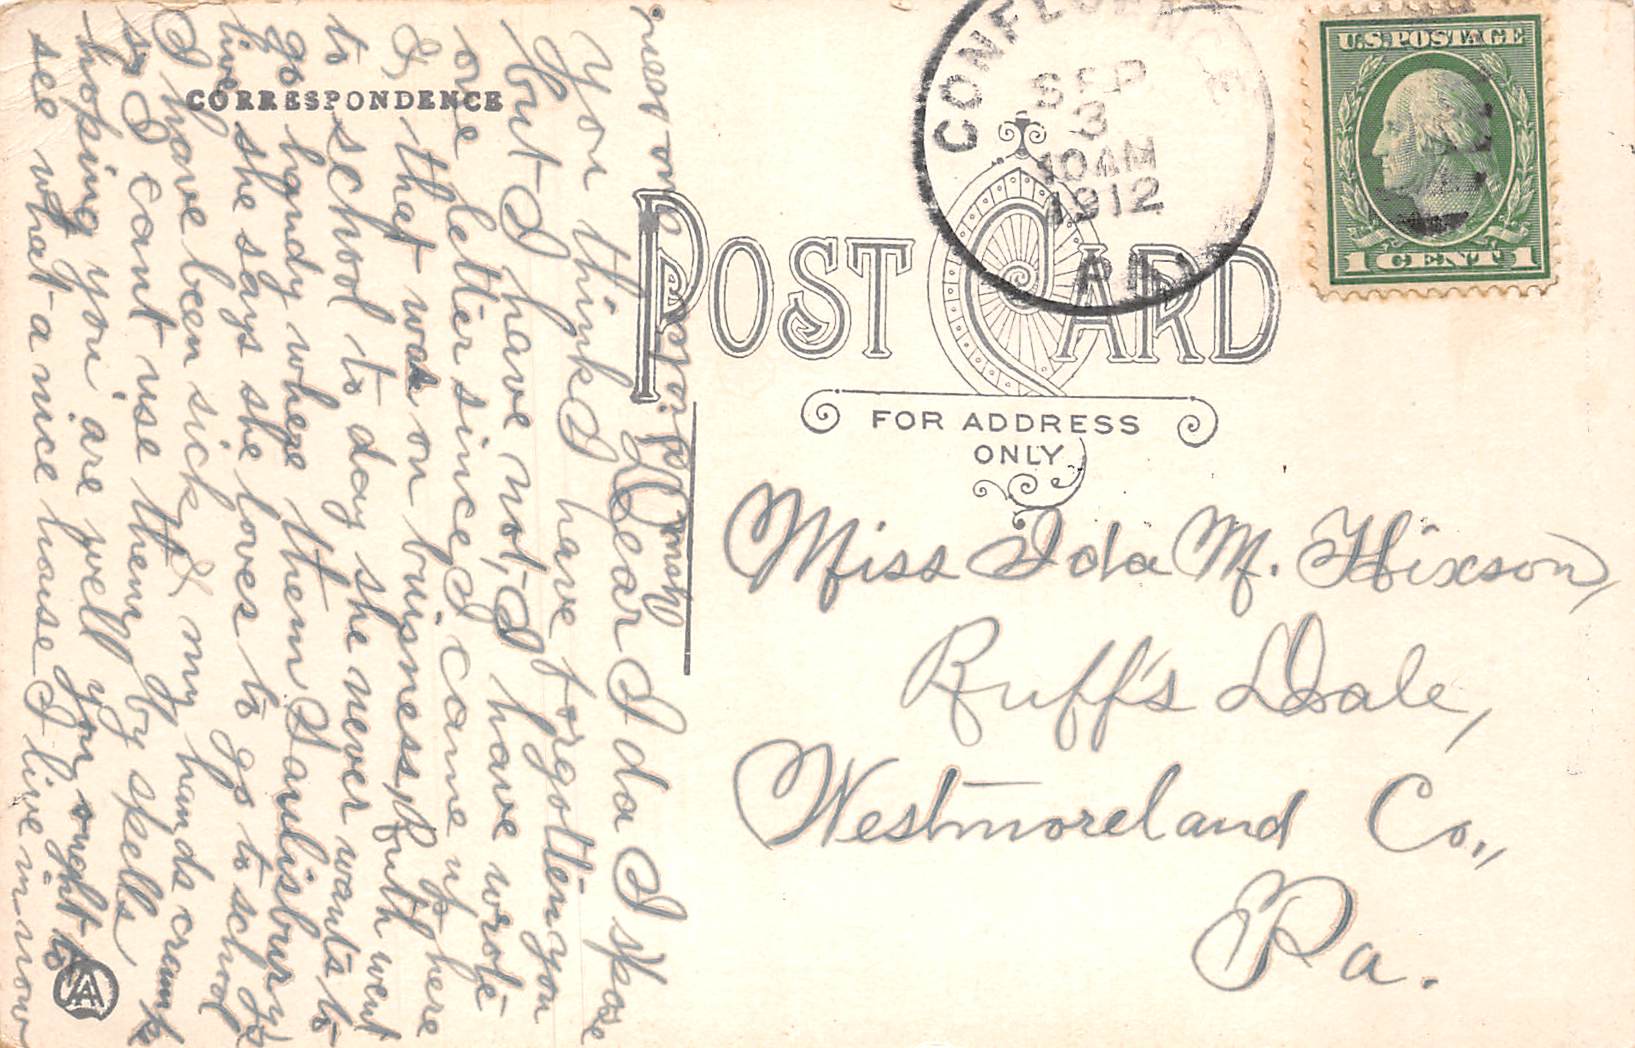 CORRESPONDENCE
POST CARD
FOR ADDRESS
ONLY
CONFLUENCE
SEP
3
10 AM
1912
PA.
U.S. POSTAGE
1 CENT 1
Miss Ida M. Hixson,
Ruff's Dale,
Westmoreland Co.,
Pa.
Dear Ida I spose
you think I have forgotten you
but I have not, I have wrote
one letter since I came up here
& that was on buisness, Ruth went
to school to day she never wants to
go handy where them Saulisbury's
live she says she loves to go to school
I have been sick & my hands cramp
so I cant use them by spells,
hoping you are well you ought to
see what a nice house I live in now